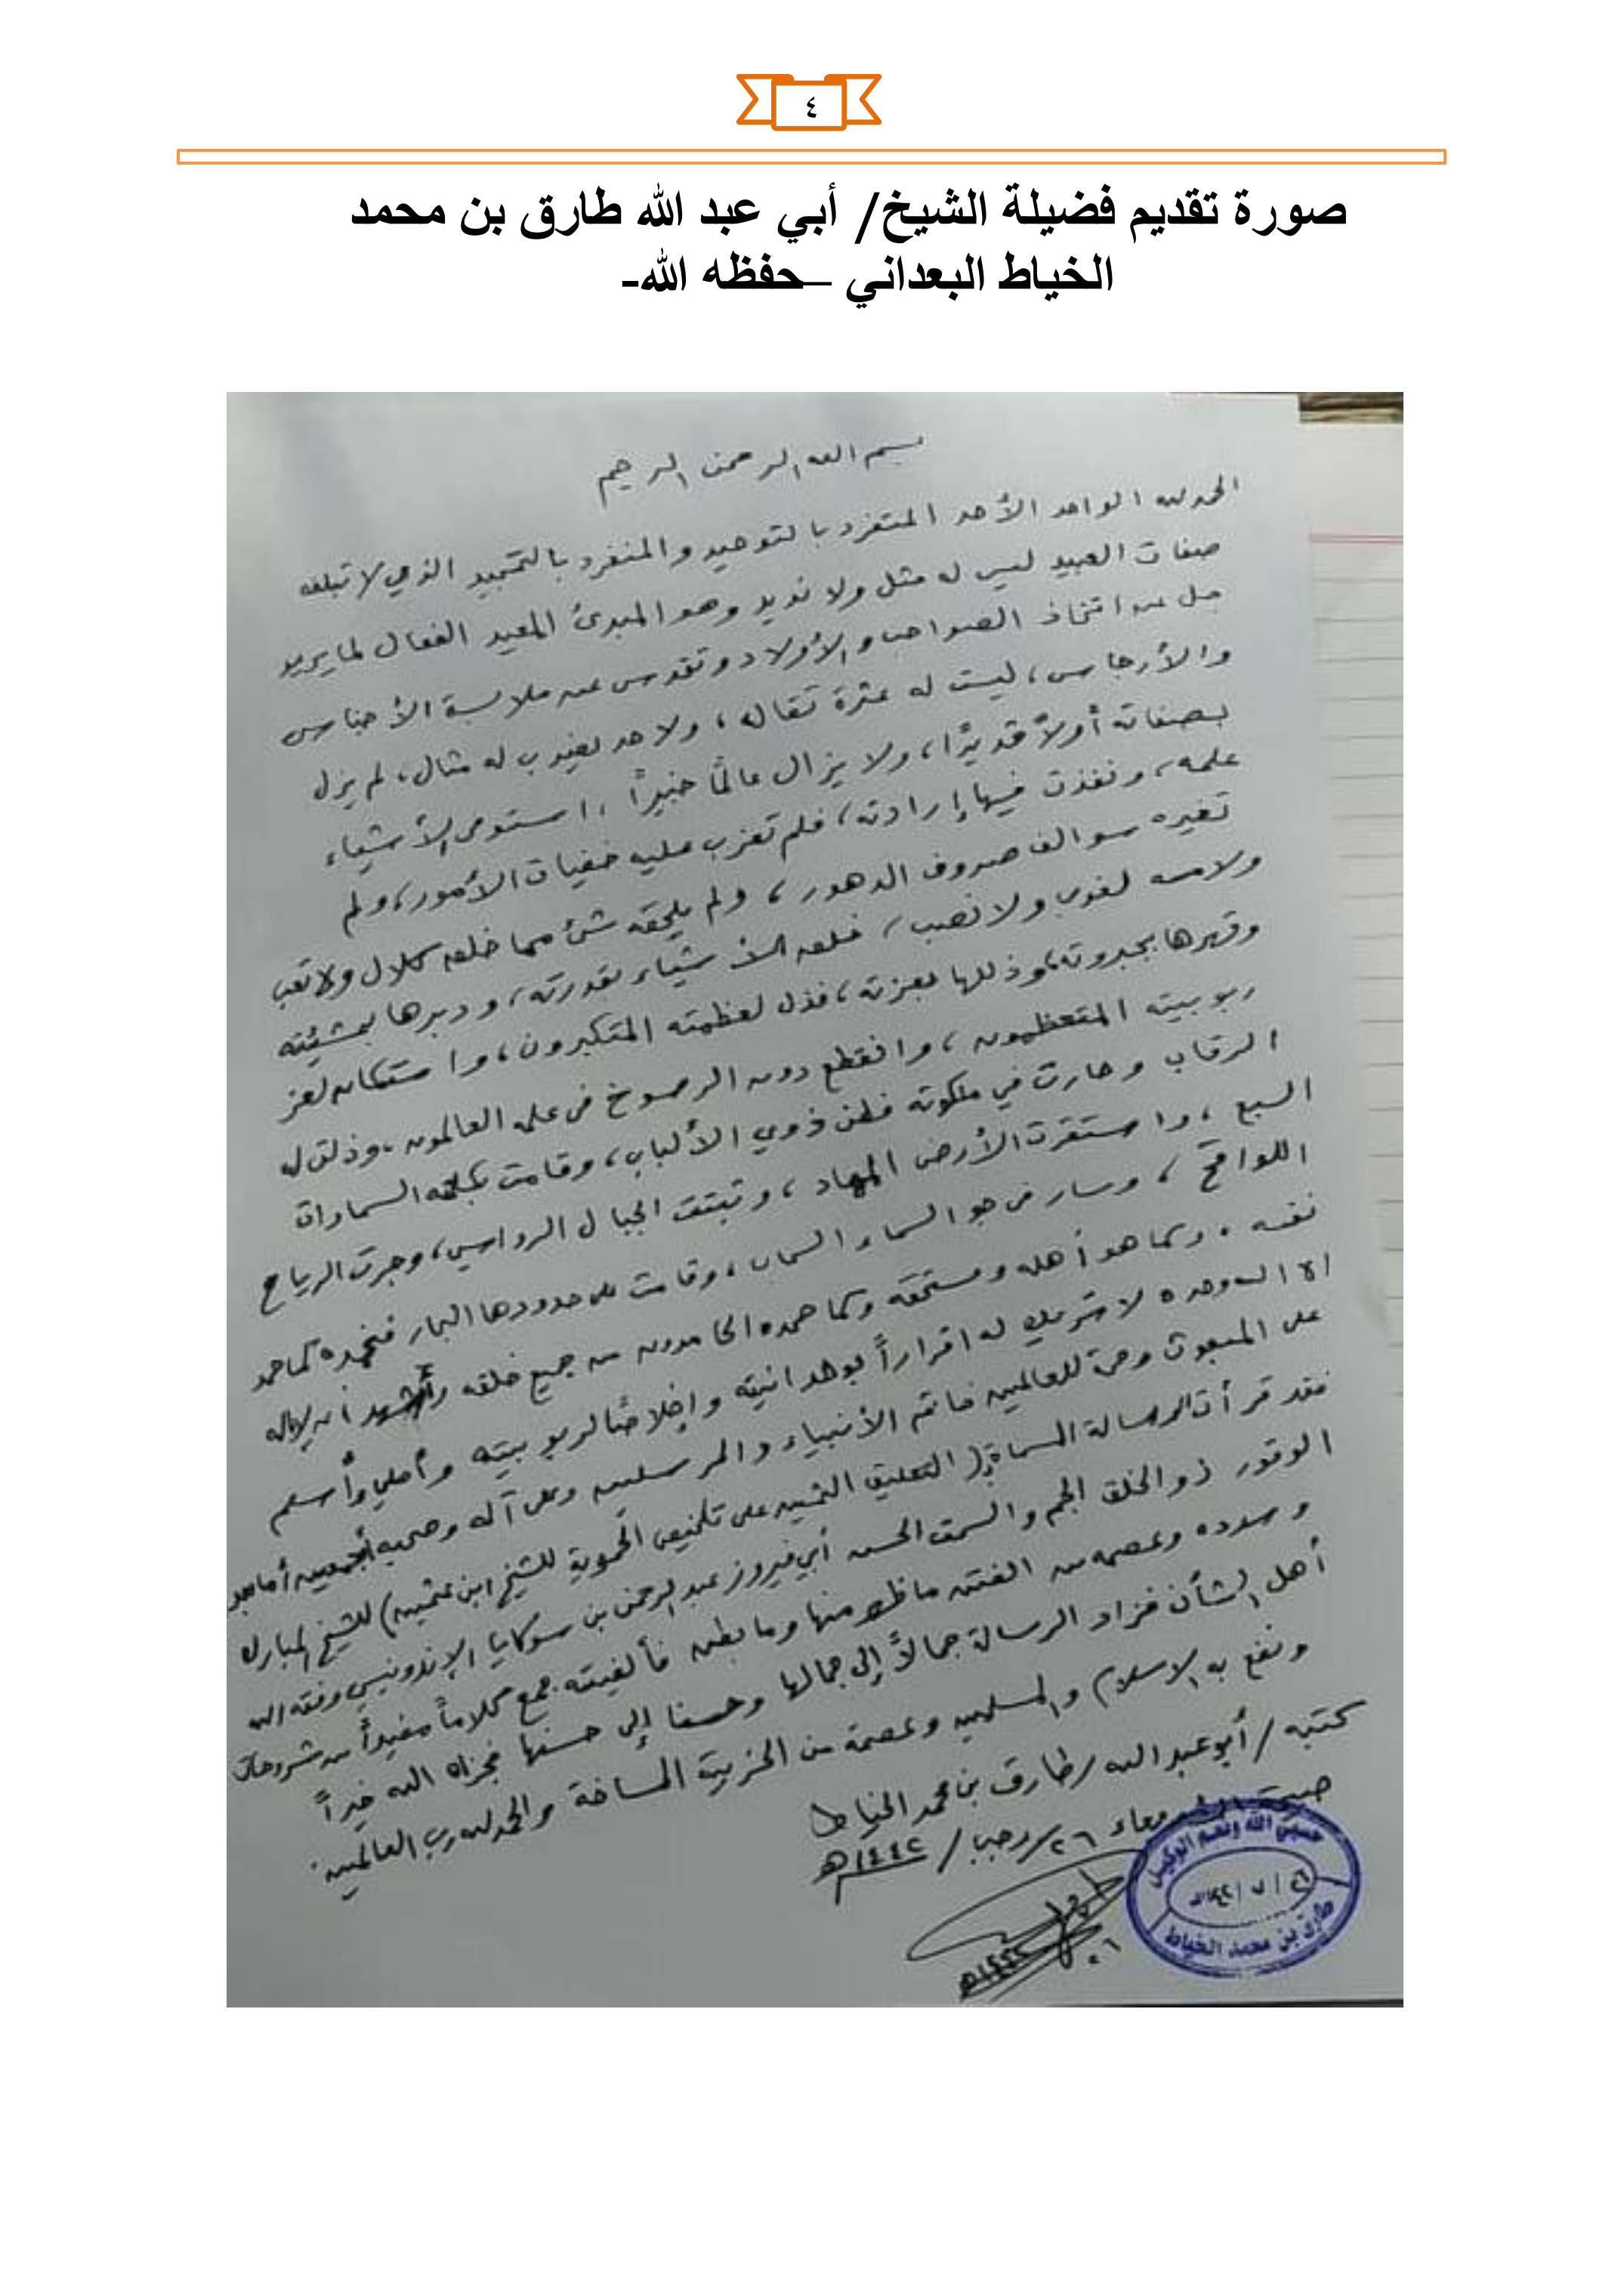 ٤
صورة تقديم فضيلة الشيخ/ أبي عبد الله طارق بن محمد
الخياط البعداني –حفظه الله-
بسم الله الرحمن الرحيم
الحمد لله الواحد الأحد المتفرد بالتوحيد والمنفرد بالتمجيد الذي لا تبلغه
صفات العبيد ليس له مثل ولا نديد وهو المبدئ المعيد الفعال لما يريد
جل عن اتخاذ الصواحب والأولاد وتقدس عن ملابسة الأجناس
والأرجاس، ليست له عثرة تقال، ولا حد يضرب له مثال، لم يزل
بصفاته أولاً قديرًا، ولا يزال عالمًا خبيرًا، استوفى الأشياء
علمه، ونفذت فيها إرادته، فلم تعزب عليه خفيات الأمور، ولم
تغيره سوالف صروف الدهور، ولم يلحقه شئ مما خلقه كلال ولا تعب
ولا مسه لغوب ولا نصب، خلق الأشياء بقدرته، ودبرها بمشيئته
وقهرها بجبروته، وذللها بعزته، فذل لعظمته المتكبرون، واستكان لعز
ربوبيته المتعظمون، وانقطع دون الرسوخ في علمه العالمون، وذلت له
الرقاب وحارت في ملكوته فطن ذوي الألباب، وقامت بكلمته السماوات
السبع، واستقرت الأرض المهاد، وثبتت الجبال الرواسي، وجرت الرياح
اللواقح، وسار في جو السماء السحاب، وقامت على حدودها البحار فنحمده كما حمد
نفسه، وكما هو أهله ومستحقه وكما حمده الحامدون من جميع خلقه وأشهد أن لا إله
إلا الله وحده لا شريك له اقراراً بوحدانيته وإخلاصًا لربوبيته وأصلي وأسلم
على المبعوث رحمة للعالمين خاتم الأنبياء والمرسلين وعلى آله وصحبه أجمعين أما بعد
فقد قرأت الرسالة المسماة بـ( التعليق الثمين على تلخيص الحموية للشيخ ابن عثيمين) للشيخ المبارك
الوقور ذو الخلق الجم والسمت الحسن أبي فيروز عبد الرحمن بن سوكايا الإندونيسي وفقه الله
وسدده وعصمه من الفتن ما ظهر منها وما بطن فألفيته جمع كلاماً مفيداً من شروحات
أهل الشأن فزاد الرسالة جمالاً إلى جمالها وحسنا إلى حسنها فجزاه الله خيراً
ونفع به الاسلام والمسلمين وعصمة من الحزبية المساخة والحمد لله رب العالمين.
كتبه / أبو عبد الله / طارق بن محمد الخياط
صبيحة الأربعاء ٢٦/ رجب/ ١٤٤٢هـ
حسبي الله ونعم الوكيل
٢٦ / ٧ / ١٤٤٢هـ
طارق بن محمد الخياط